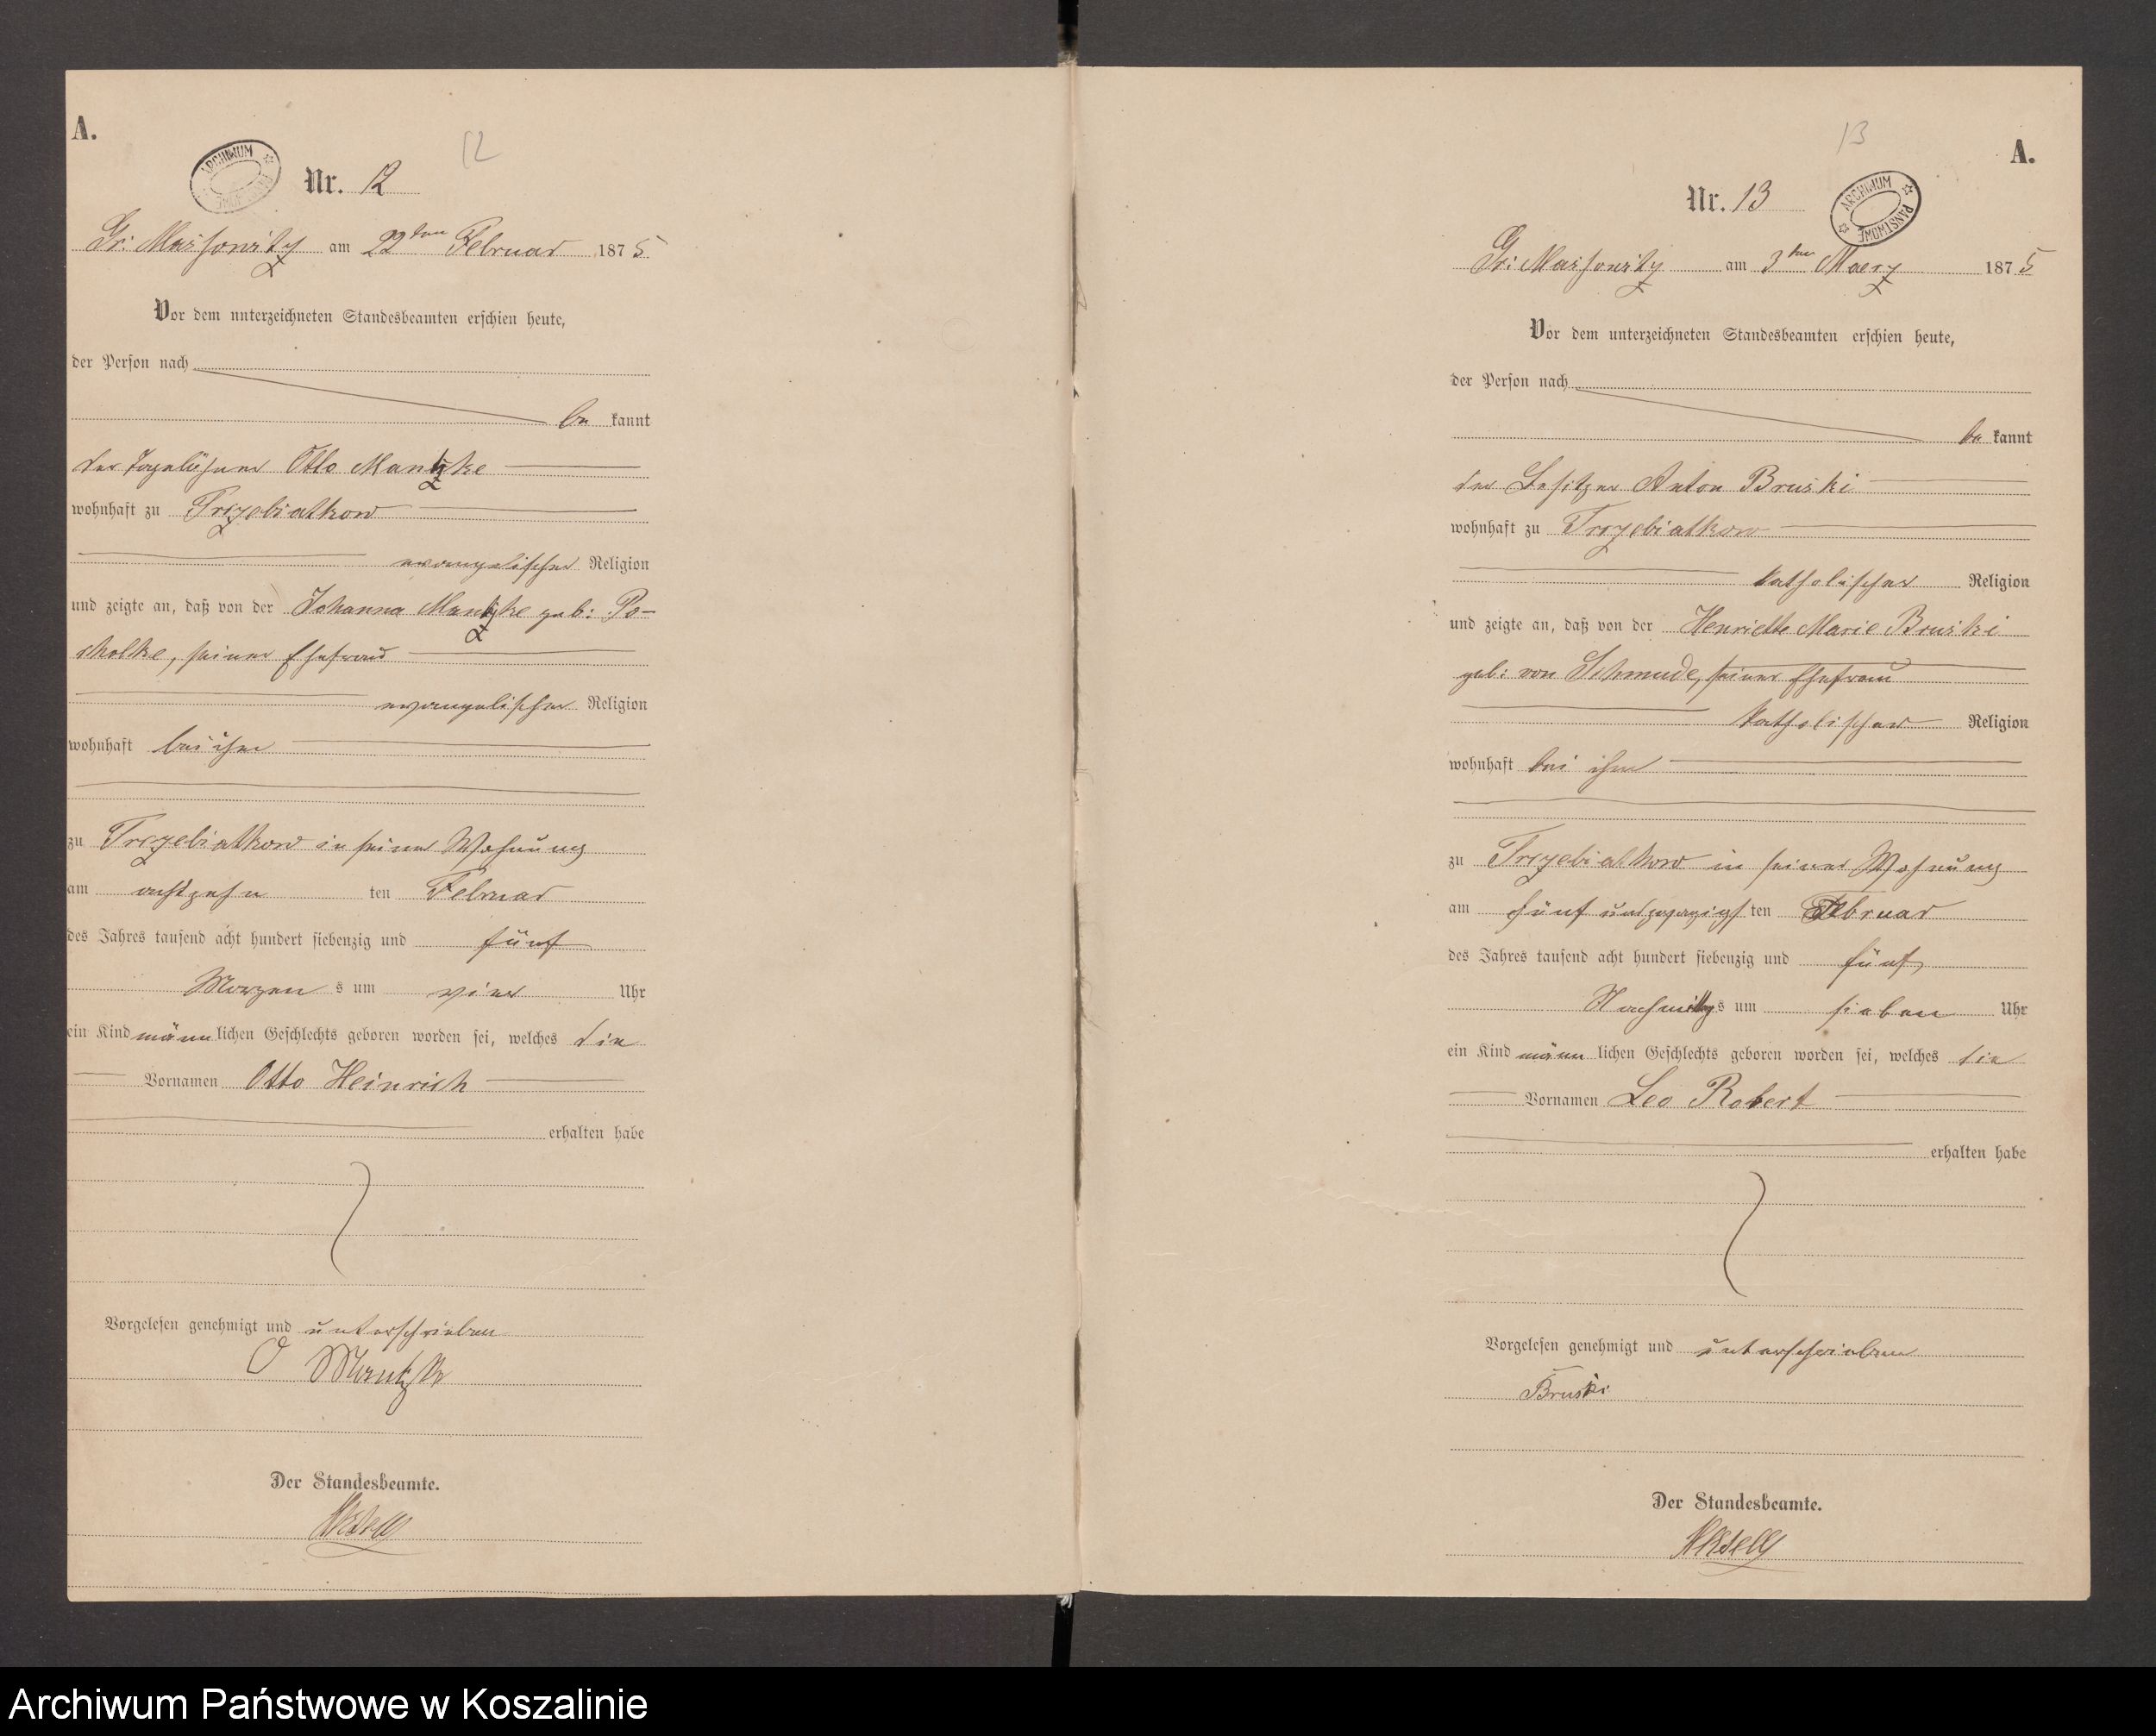 A.
12
ARCHIWUM PAŃSTWOWE
Nr. 12
Gr: Massowitz am 22ten Februar 1875
Vor dem unterzeichneten Standesbeamten erschien heute,
der Person nach
be kannt
der Tagelöhner Otto Mantzke
wohnhaft zu Trzebiatkow
evangelischer Religion
und zeigte an, daß von der Johanna Mantzke geb: Po-
scholke, seiner Ehefrau
evangelischer Religion
wohnhaft bei ihm
zu Trzebiatkow in seiner Wohnung
am achtzehn ten Februar
des Jahres tausend acht hundert siebenzig und fünf
Morgen s um vier Uhr
ein Kind männ lichen Geschlechts geboren worden sei, welches die
Vornamen Otto Heinrich
erhalten habe
Vorgelesen genehmigt und unterschrieben
O Mantzke
Der Standesbeamte.
A.
13
Nr. 13
ARCHIWUM PAŃSTWOWE
Gr: Massowitz am 3ten Maerz 1875
Vor dem unterzeichneten Standesbeamten erschien heute,
der Person nach
be kannt
der Besitzer Anton Bruski
wohnhaft zu Trzebiatkow
katholischer Religion
und zeigte an, daß von der Henriette Marie Bruski
geb: von Schmude, seiner Ehefrau
katholischer Religion
wohnhaft bei ihm
zu Trzebiatkow in seiner Wohnung
am fünf und zwanzigs ten Februar
des Jahres tausend acht hundert siebenzig und fünf
Nachmittag s um sieben Uhr
ein Kind männ lichen Geschlechts geboren worden sei, welches die
Vornamen Leo Robert
erhalten habe
Vorgelesen genehmigt und unterschrieben
Bruski
Der Standesbeamte.
Archiwum Państwowe w Koszalinie